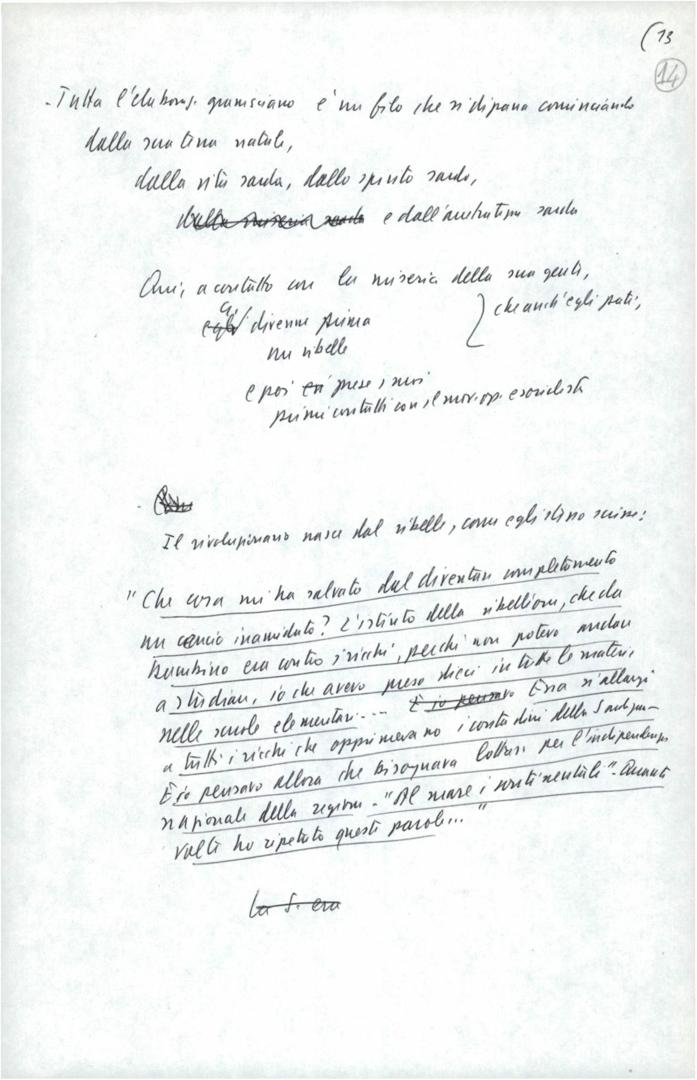 (13
14
- Tutta l'elaboraz. gramsciana è un filo che si dipana cominciando
dalla sua terra natale,
dalla vita sarda, dallo spirito sardo,
dalla miseria sarda e dall'arretratezza sarda
Qui, a contatto con la miseria della sua gente,
che anch'egli patì,
egli divenne prima
un ribelle
e poi prese i suoi
primi contatti con il mov. op. e socialista
Il rivoluzionario nasce dal ribelle, come egli stesso scrisse:
"Che cosa mi ha salvato dal diventare completamente
un cencio inamidato? L'istinto della ribellione, che da
bambino era contro i ricchi, perché non potevo andare
a studiare, io che avevo preso dieci in tutte le materie
nelle scuole elementari.... E io pensavo Essa si allargò
a tutti i ricchi che opprimevano i contadini della Sardegna
E io pensavo allora che bisognava lottare per l'indipendenza
nazionale della regione - "Al mare i continentali". Quante
volte ho ripetuto queste parole..."
La S. era